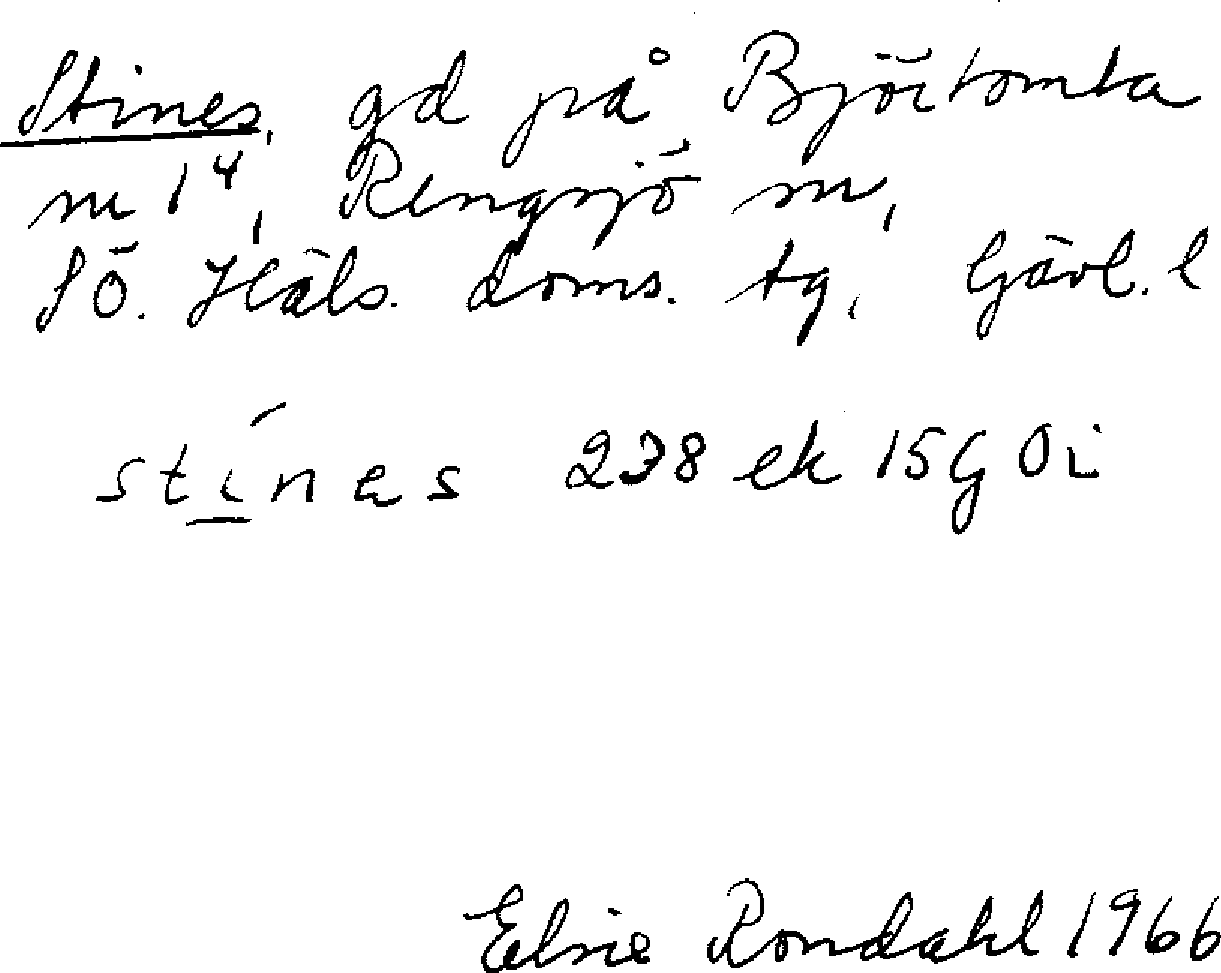 Stines, gd på Björtomta
nr 1⁴, Rengsjö sn,
Sö. Häls. doms. tg, Gävl. l
stínəs 238 ek 15G 0i
Elsie Rondahl 1966